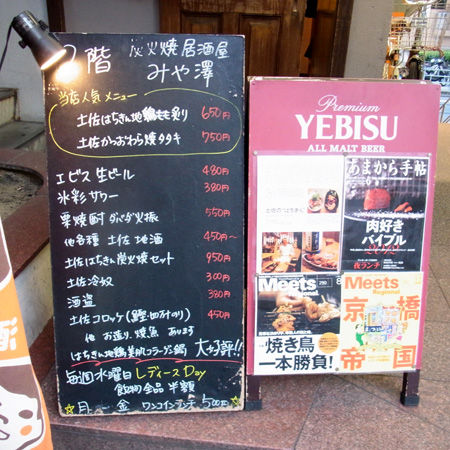 2階 炭火焼居酒屋
みや澤
当店人気メニュー
土佐はちきん地鶏もも炙り 650円
土佐かつおわら焼タタキ 750円
ヱビス 生ビール 480円
氷彩サワー 380円
栗焼酎 ダバダ火振 550円
他各種 土佐地酒 450円〜
土佐はちきん炭火焼セット 950円
土佐冷奴 300円
酒盗 380円
土佐コロッケ 450円
他 お造り、焼魚 あります
はちきん地鶏美肌コラーゲン鍋 大好評!!
毎週水曜日 レディースDay
飲物全品半額
☆月 金 ワンコインランチ 500円☆
Premium
YEBISU
ALL MALT BEER
あまから手帖
肉好き
バイブル
2012
夜ランチ
Meets
Regional
焼き鳥
一本勝負!
Meets
Regional
京橋
帝国